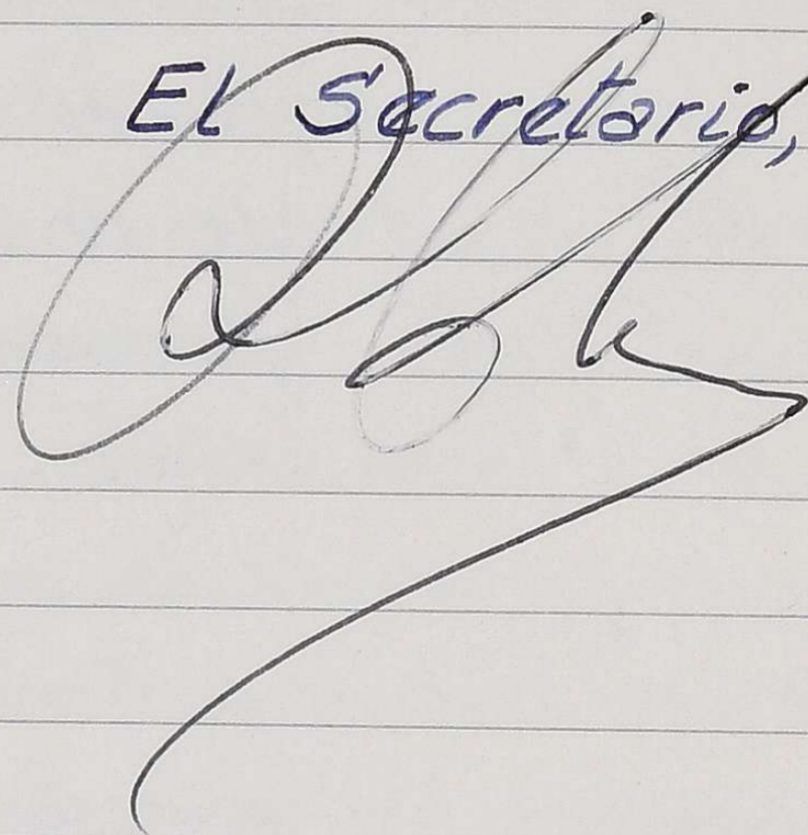 El Secretario,